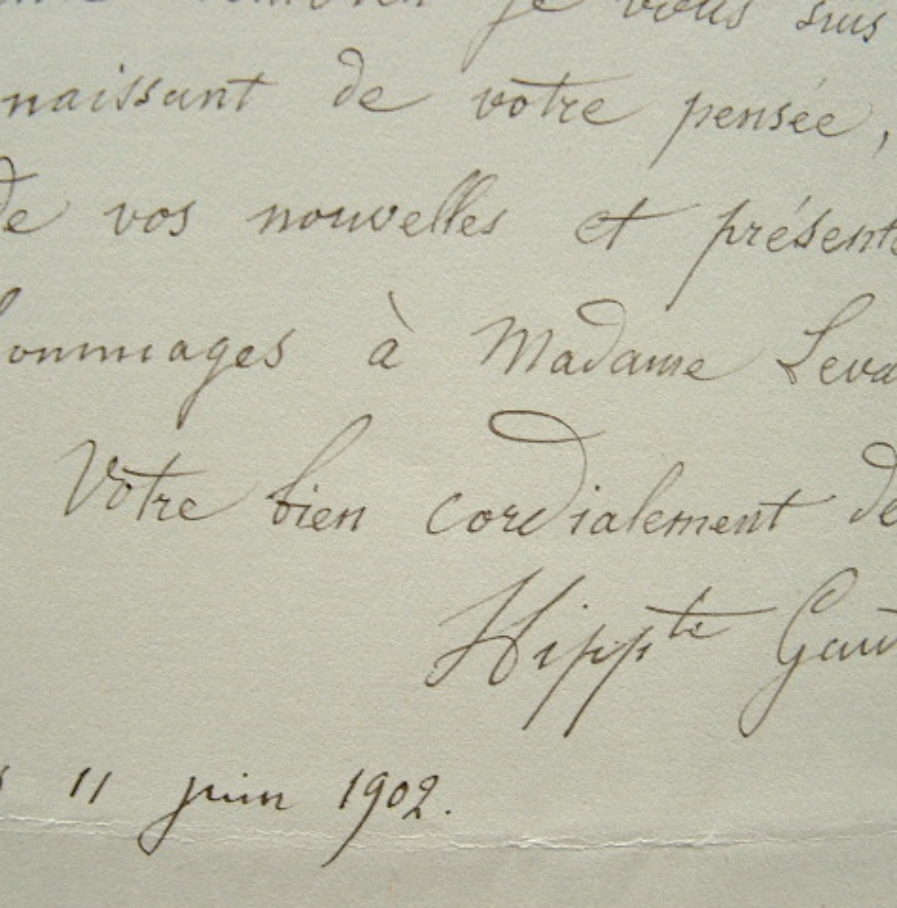 combien je vous suis
naissant de votre pensée,
de vos nouvelles et présente
hommages à Madame Leva
Votre bien cordialement de
Hippte Gau
11 juin 1902.